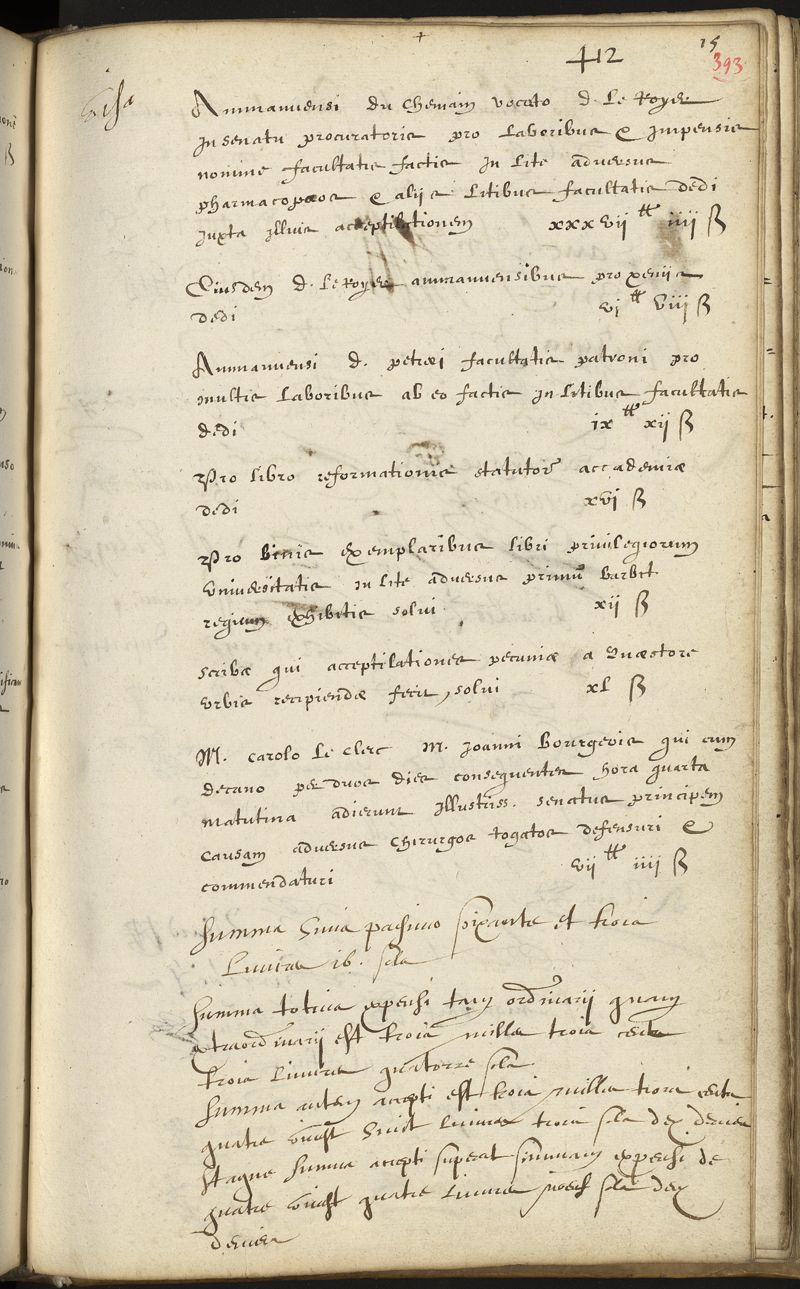 +
+12
15
393
visa
Ammanuensi du Chemain vocato d. Le Royer
In senatu procuratoris pro Laboribus & Impensis
nomine facultatis factis In Lite adversus
pharmacopæos & aliis Litibus facultatis dedi
Juxta Illius acceptilationem xxxvii ₶ iiii ß
Eiusdem d. Le Royer ammanuensibus pro xeniis
dedi vi ₶ viii ß
Ammanuensi d. petræi facultatis patroni pro
multis Laboribus ab eo factis In Litibus facultatis
dedi ix ₶ xii ß
Pro Libro reformationis statutoꝝ accademiæ
dedi xvi ß
Pro binis exemplaribus Libri privilegiorum
Universitatis in Lite adversus primū barbit
regium exhibitis solui xii ß
scribæ qui acceptilationes pecuniæ a Quæstore
Urbis recipiendæ fecit, solui xL ß
M. Carolo Le Clerc M. Joanni Bourgeois qui cum
decano per duos dies consequentes hora quarta
matutina adierunt Illustriss. senatus principem
causam adversus Chirurgos togatos defensuri &
commendaturi vii ₶ iiii ß
Summa soixante et trois
Livres
Summa totius expensi tam ordinarij quam
extraordinarij est trois mille trois cents
trois Livres quatorze sols
Summa autem accepti est trois mille trois cents
quatre vingt huict Livres trois sols dex deniers
Itaque Summa accepti superat summam expensi de
quatre vingt quatre Livres neuf sols dex
deniers